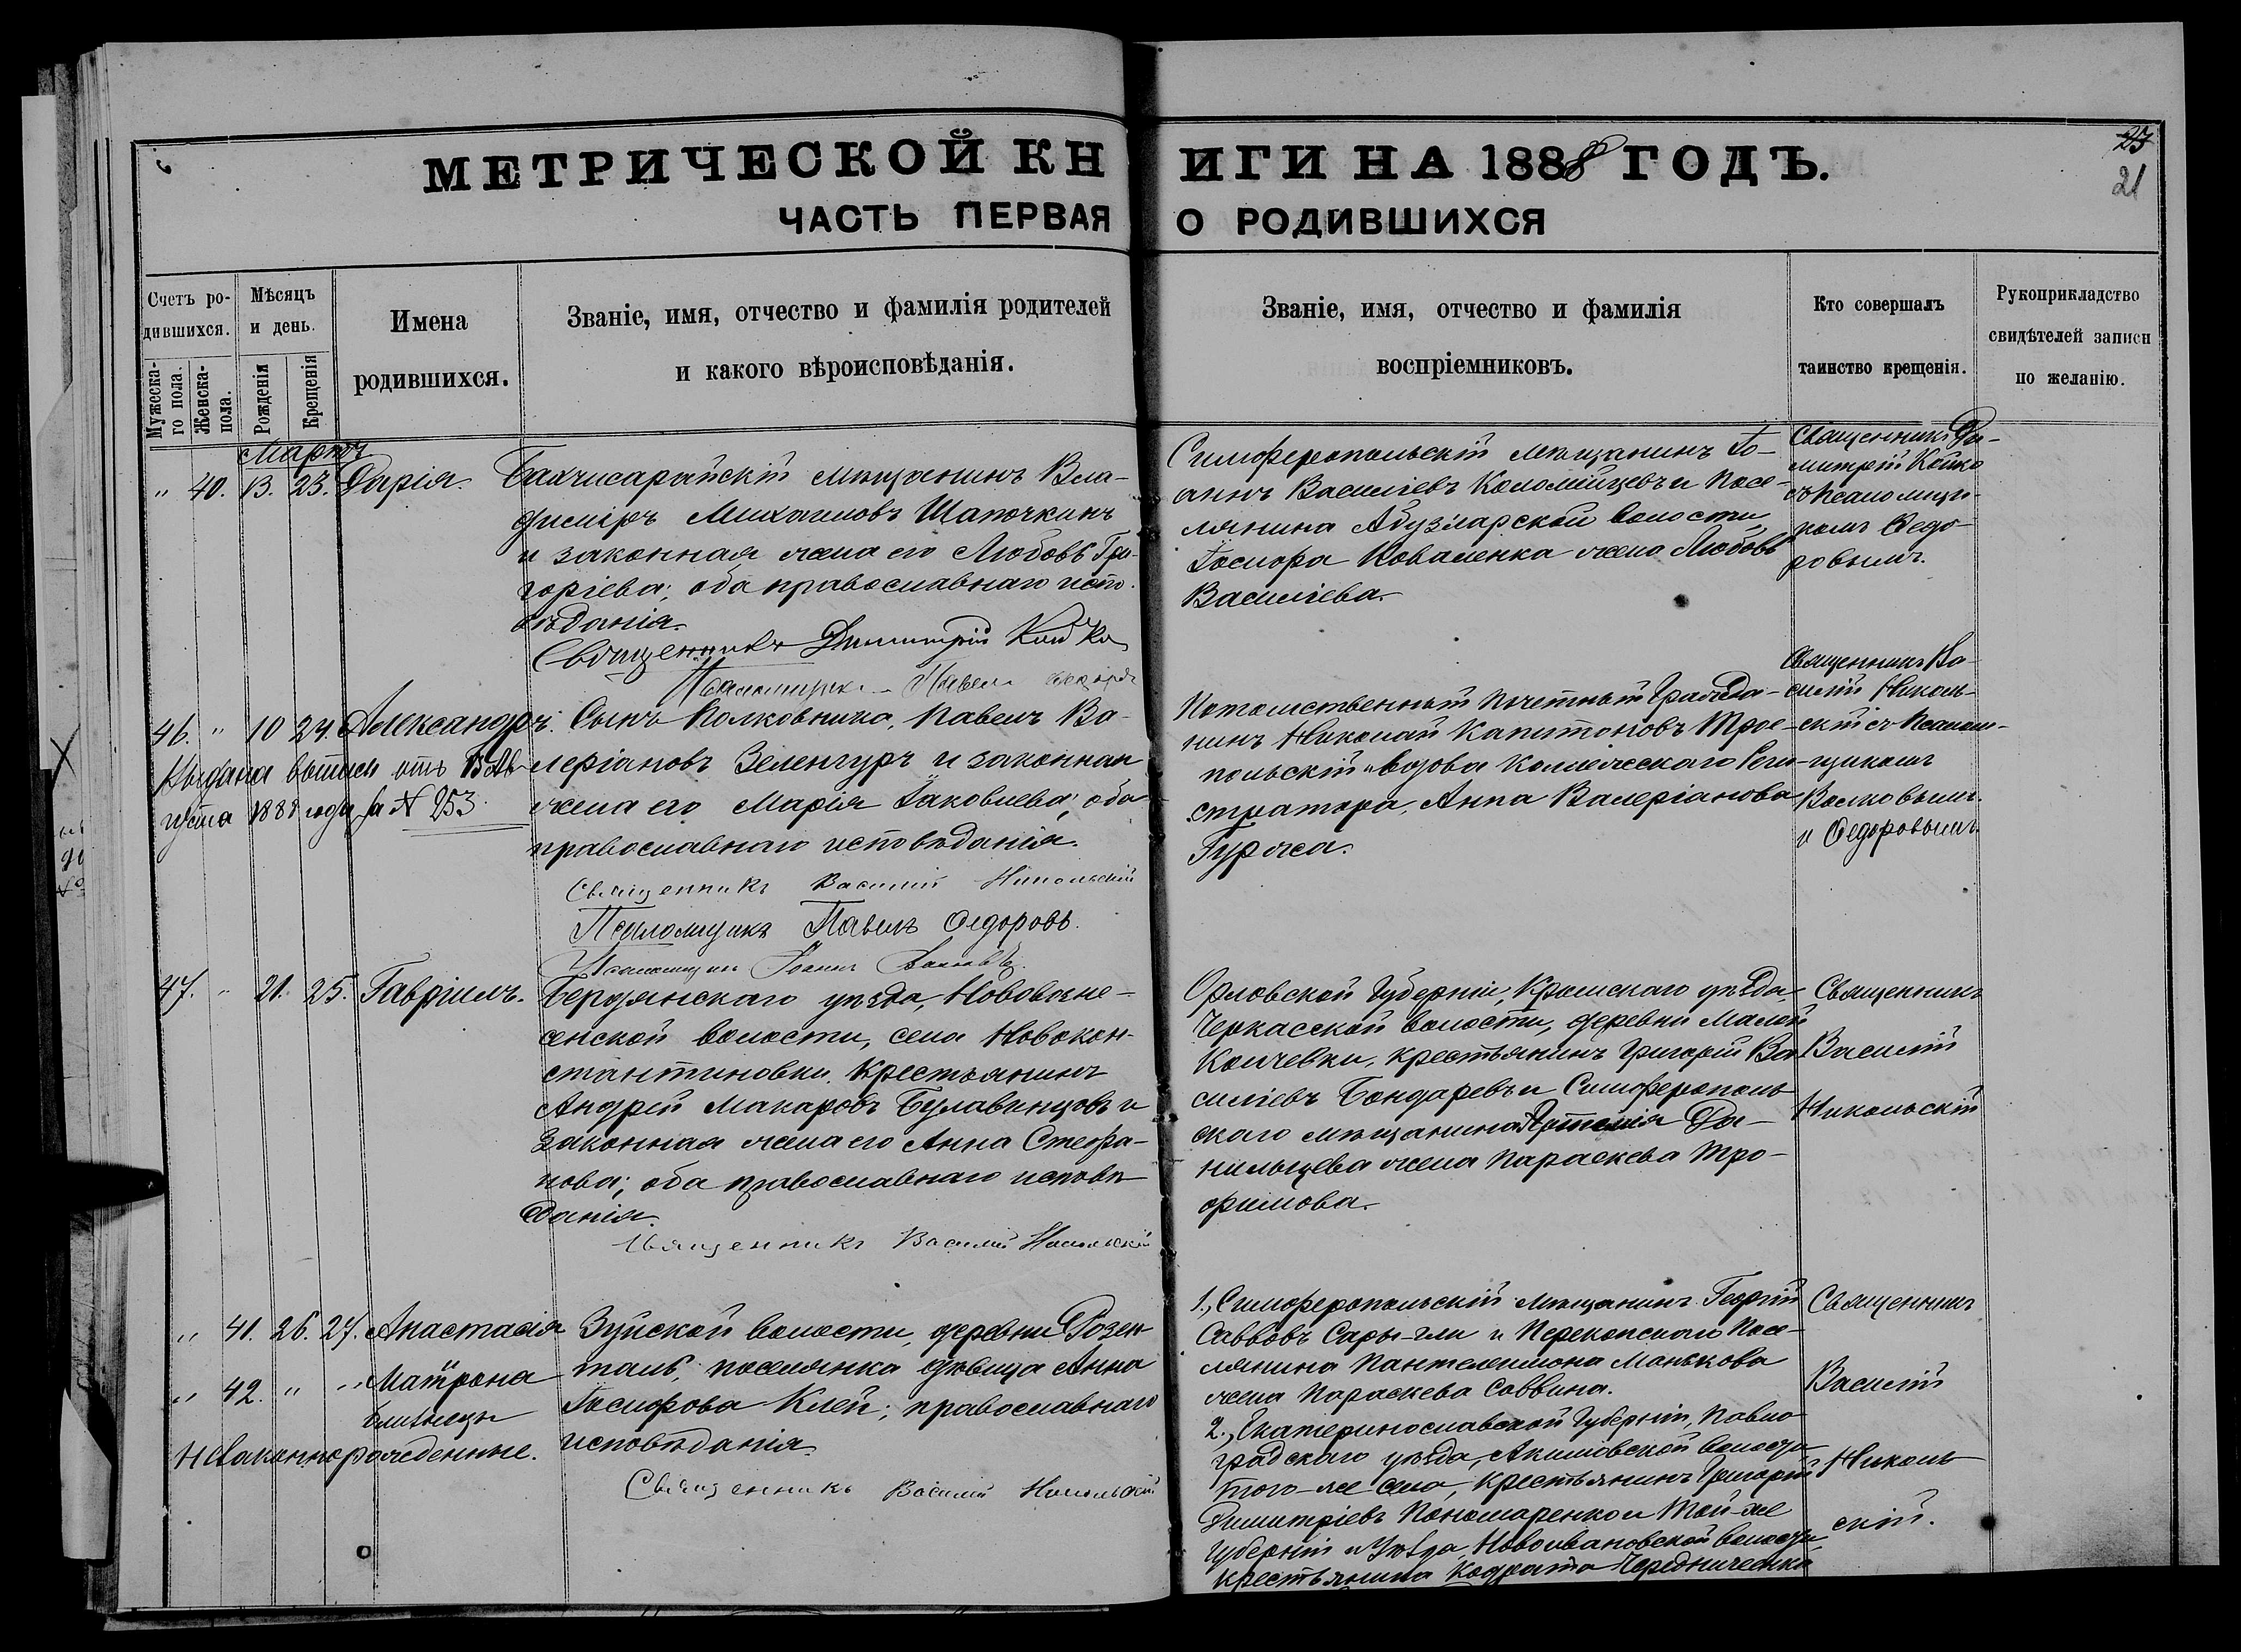 МЕТРИЧЕСКОЙ КНИГИ НА 1888 ГОДЪ.
ЧАСТЬ ПЕРВАЯ О РОДИВШИХСЯ
25
21
Счетъ ро-
дившихся.
Мужеска-
го пола.
Женска-
пола.
Мѣсяцъ
и день.
Рожденія
Крещенія
Имена
родившихся.
Званіе, имя, отчество и фамилія родителей
и какого вѣроисповѣданія.
Званіе, имя, отчество и фамилія
воспріемниковъ.
Кто совершалъ
таинство крещенія.
Рукоприкладство
свидѣтелей записи
по желанію.
Мартъ
" 40. 13. 23. Дарія.
Бахчисарайскій мѣщанинъ Вла-
диміръ Михаиловъ Шапочкинъ
и законная жена его Любовь Гри-
горіева; оба православнаго испо-
вѣданія.
Священникъ Димитрій Койко
Псаломщикъ Павелъ Ѳедоровъ
Симферопольскій мѣщанинъ Іо-
аннъ Василіевъ Коломійцевъ и посе-
лянина Абузларской волости,
Іосифа Коваленка жена Любовь
Василіева.
Священникъ Ди-
митрій Койко
съ псаломщи-
комъ Ѳедо-
ровымъ.
46. " 10 24. Александръ.
Выдана выпись отъ 13 Ав-
густа 1888 года за № 253.
Сынъ Полковника, Павелъ Ва-
леріановъ Зеленгуръ и законная
жена его Марія Іаковлева; оба
православнаго исповѣданія.
Священникъ Василій Никольскій
Псаломщикъ Павелъ Ѳедоровъ.
Псаломщикъ Іоаннъ Волковъ.
Потомственный Почетный Гражда-
нинъ Николай Капитоновъ Трое-
польскій и вдова Коллежскаго Реги-
стратора, Анна Валеріанова
Гуржа.
Священникъ Ва-
силій Николь-
скій съ псалом-
щикомъ
Волковымъ
и Ѳедоровымъ.
47. " 21. 25. Гавріилъ.
Бердянскаго уѣзда, Нововозне-
сенской волости, села Новокон-
стантиновки, крестьянинъ
Андрей Макаровъ Булавинцовъ и
законная жена его Анна Стефа-
нова; оба православнаго исповѣ-
данія.
Священникъ Василій Никольскій
Орловской Губерніи, Кромскаго уѣзда,
Черкасской волости, деревни Малой
Колчевки, крестьянинъ Григорій Ва-
силіевъ Бондаревъ и Симферополь-
скаго мѣщанина Артемія Да-
нильцева жена Параскева Тро-
фимова.
Священникъ
Василій
Никольскій
" 41. 26. 27. Анастасія
" 42. " " Матрона
близнецы
Незаконнорожденные.
Зуйской волости, деревни Розен-
таль, поселянка дѣвица Анна
Іосифова Клей; православнаго
исповѣданія.
Священникъ Василій Никольскій
1., Симферопольскій мѣщанинъ Георгій
Саввовъ Сары-гли и Перекопскаго посе-
лянина Пантелеимона Манькова
жена Параскева Саввина.
2., Екатеринославской Губерніи, Павло-
градскаго уѣзда, Акимовской волости
того-же села, крестьянинъ Григорій
Димитріевъ Пономаренко и той-же
Губерніи и Уѣзда, Новоивановской волости,
крестьянина Кодрата Чередниченка
Священникъ
Василій
Николь-
скій.